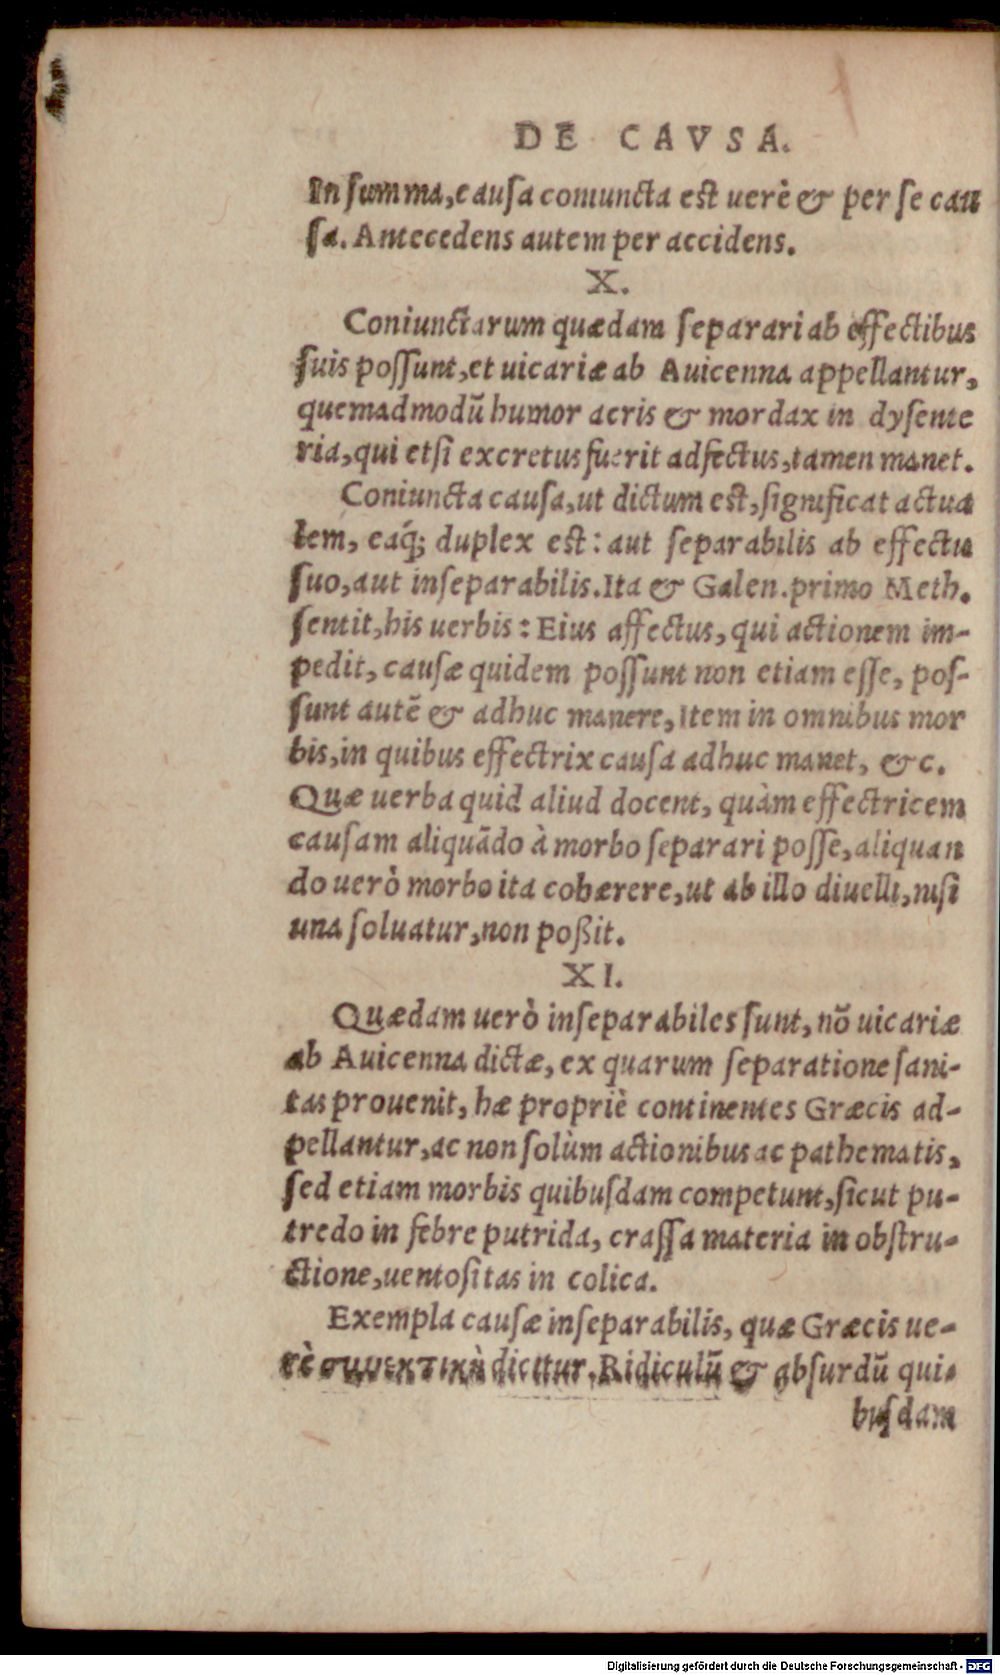 DE CAVSA.
In ſumma, cauſa coniuncta est uerè & per ſe cau
ſa. Antecedens autem per accidens.
X.
Coniunctarum quædam ſeparari ab effectibus
ſuis poſſunt, et uicariæ ab Auicenna appellantur,
quemadmodū humor acris & mordax in dyſente
ria, qui etſi excretus fuerit adfectus, tamen manet.
Coniuncta cauſa, ut dictum est, ſignificat actua
lem, eaq́; duplex est: aut ſeparabilis ab effectu
ſuo, aut inſeparabilis. Ita & Galen. primo Meth.
ſentit, his uerbis: Eius affectus, qui actionem im-
pedit, cauſæ quidem poſſunt non etiam eſſe, poſ-
ſunt autē & adhuc manere, Item in omnibus mor
bis, in quibus effectrix cauſa adhuc manet, &c.
Quæ uerba quid aliud docent, quàm effectricem
cauſam aliquādo à morbo ſeparari poſſe, aliquan
do uerò morbo ita cohærere, ut ab illo diuelli, niſi
una ſoluatur, non poßit.
XI.
Quædam uerò inſeparabiles ſunt, nō uicariæ
ab Auicenna dictæ, ex quarum ſeparatione ſani-
tas prouenit, hæ propriè continentes Græcis ad-
pellantur, ac non ſolùm actionibus ac pathematis,
ſed etiam morbis quibuſdam competunt, ſicut pu-
tredo in febre putrida, craſſa materia in obstru-
ctione, uentoſitas in colica.
Exempla cauſæ inſeparabilis, quæ Græcis ue-
rè dicitur. Ridiculū & abſurdū qui-
buſdam
Digitalisierung gefördert durch die Deutsche Forschungsgemeinschaft - DFG